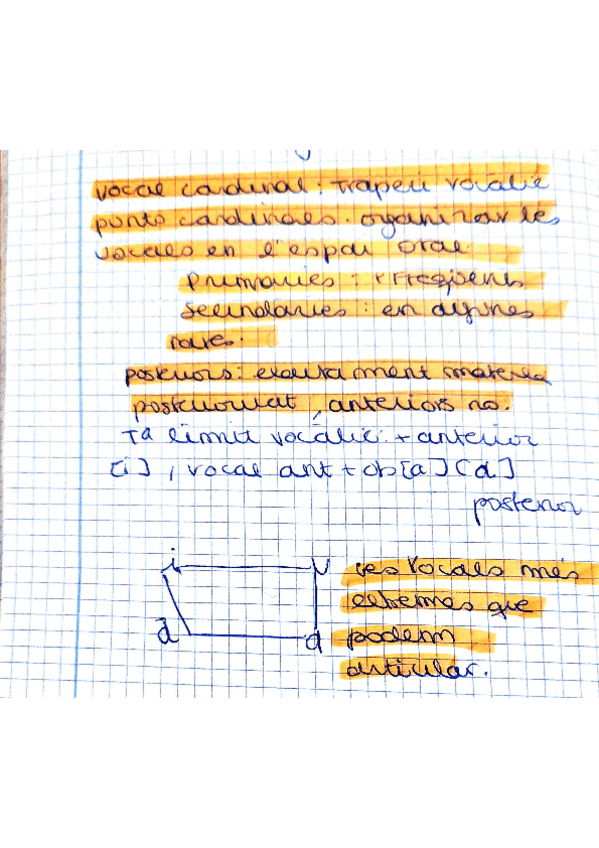 vocal cardinal: trapezi vocàlic
punts cardinales. organitzar les
vocales en l'espai oral.
Primàries: + freqüents
Secundàries: en algunes
rares.
posteriors: exactament mateixa
posterioritat, anteriors no.
Ta límit vocàlic: + anterior
[i], vocal ant + ob [a] [ɑ]
posterior
i u les vocals més
extremes que
a ɑ podem
articular.